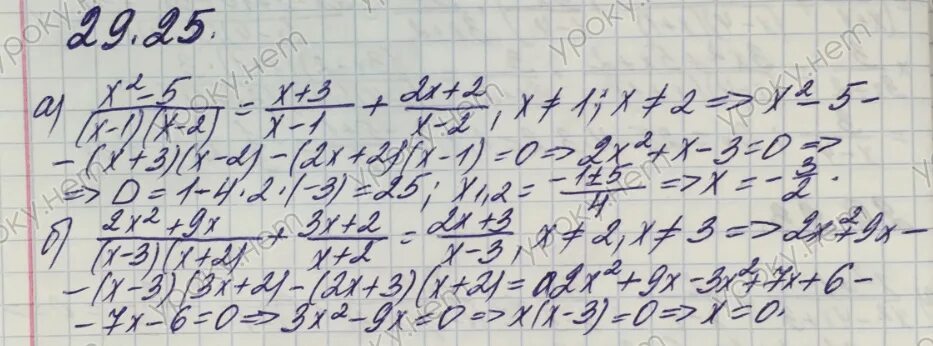 29.25.
а) (x²-5)/((x-1)(x-2)) = (x+3)/(x-1) + (2x+2)/(x-2), x≠1; x≠2 => x²-5-
-(x+3)(x-2)-(2x+2)(x-1)=0 => 2x²+x-3=0 =>
=> D=1-4·2·(-3)=25; x₁,₂=(-1±5)/4 => x=-3/2.
б) (2x²+9x)/((x-3)(x+2)) - (3x+2)/(x+2) = (2x+3)/(x-3), x≠2, x≠3 => 2x²+9x-
-(x-3)(3x+2)-(2x+3)(x+2)=0 2x²+9x-3x²+7x+6-
-7x-6=0 => 3x²-9x=0 => x(x-3)=0 => x=0.
уроку.нет